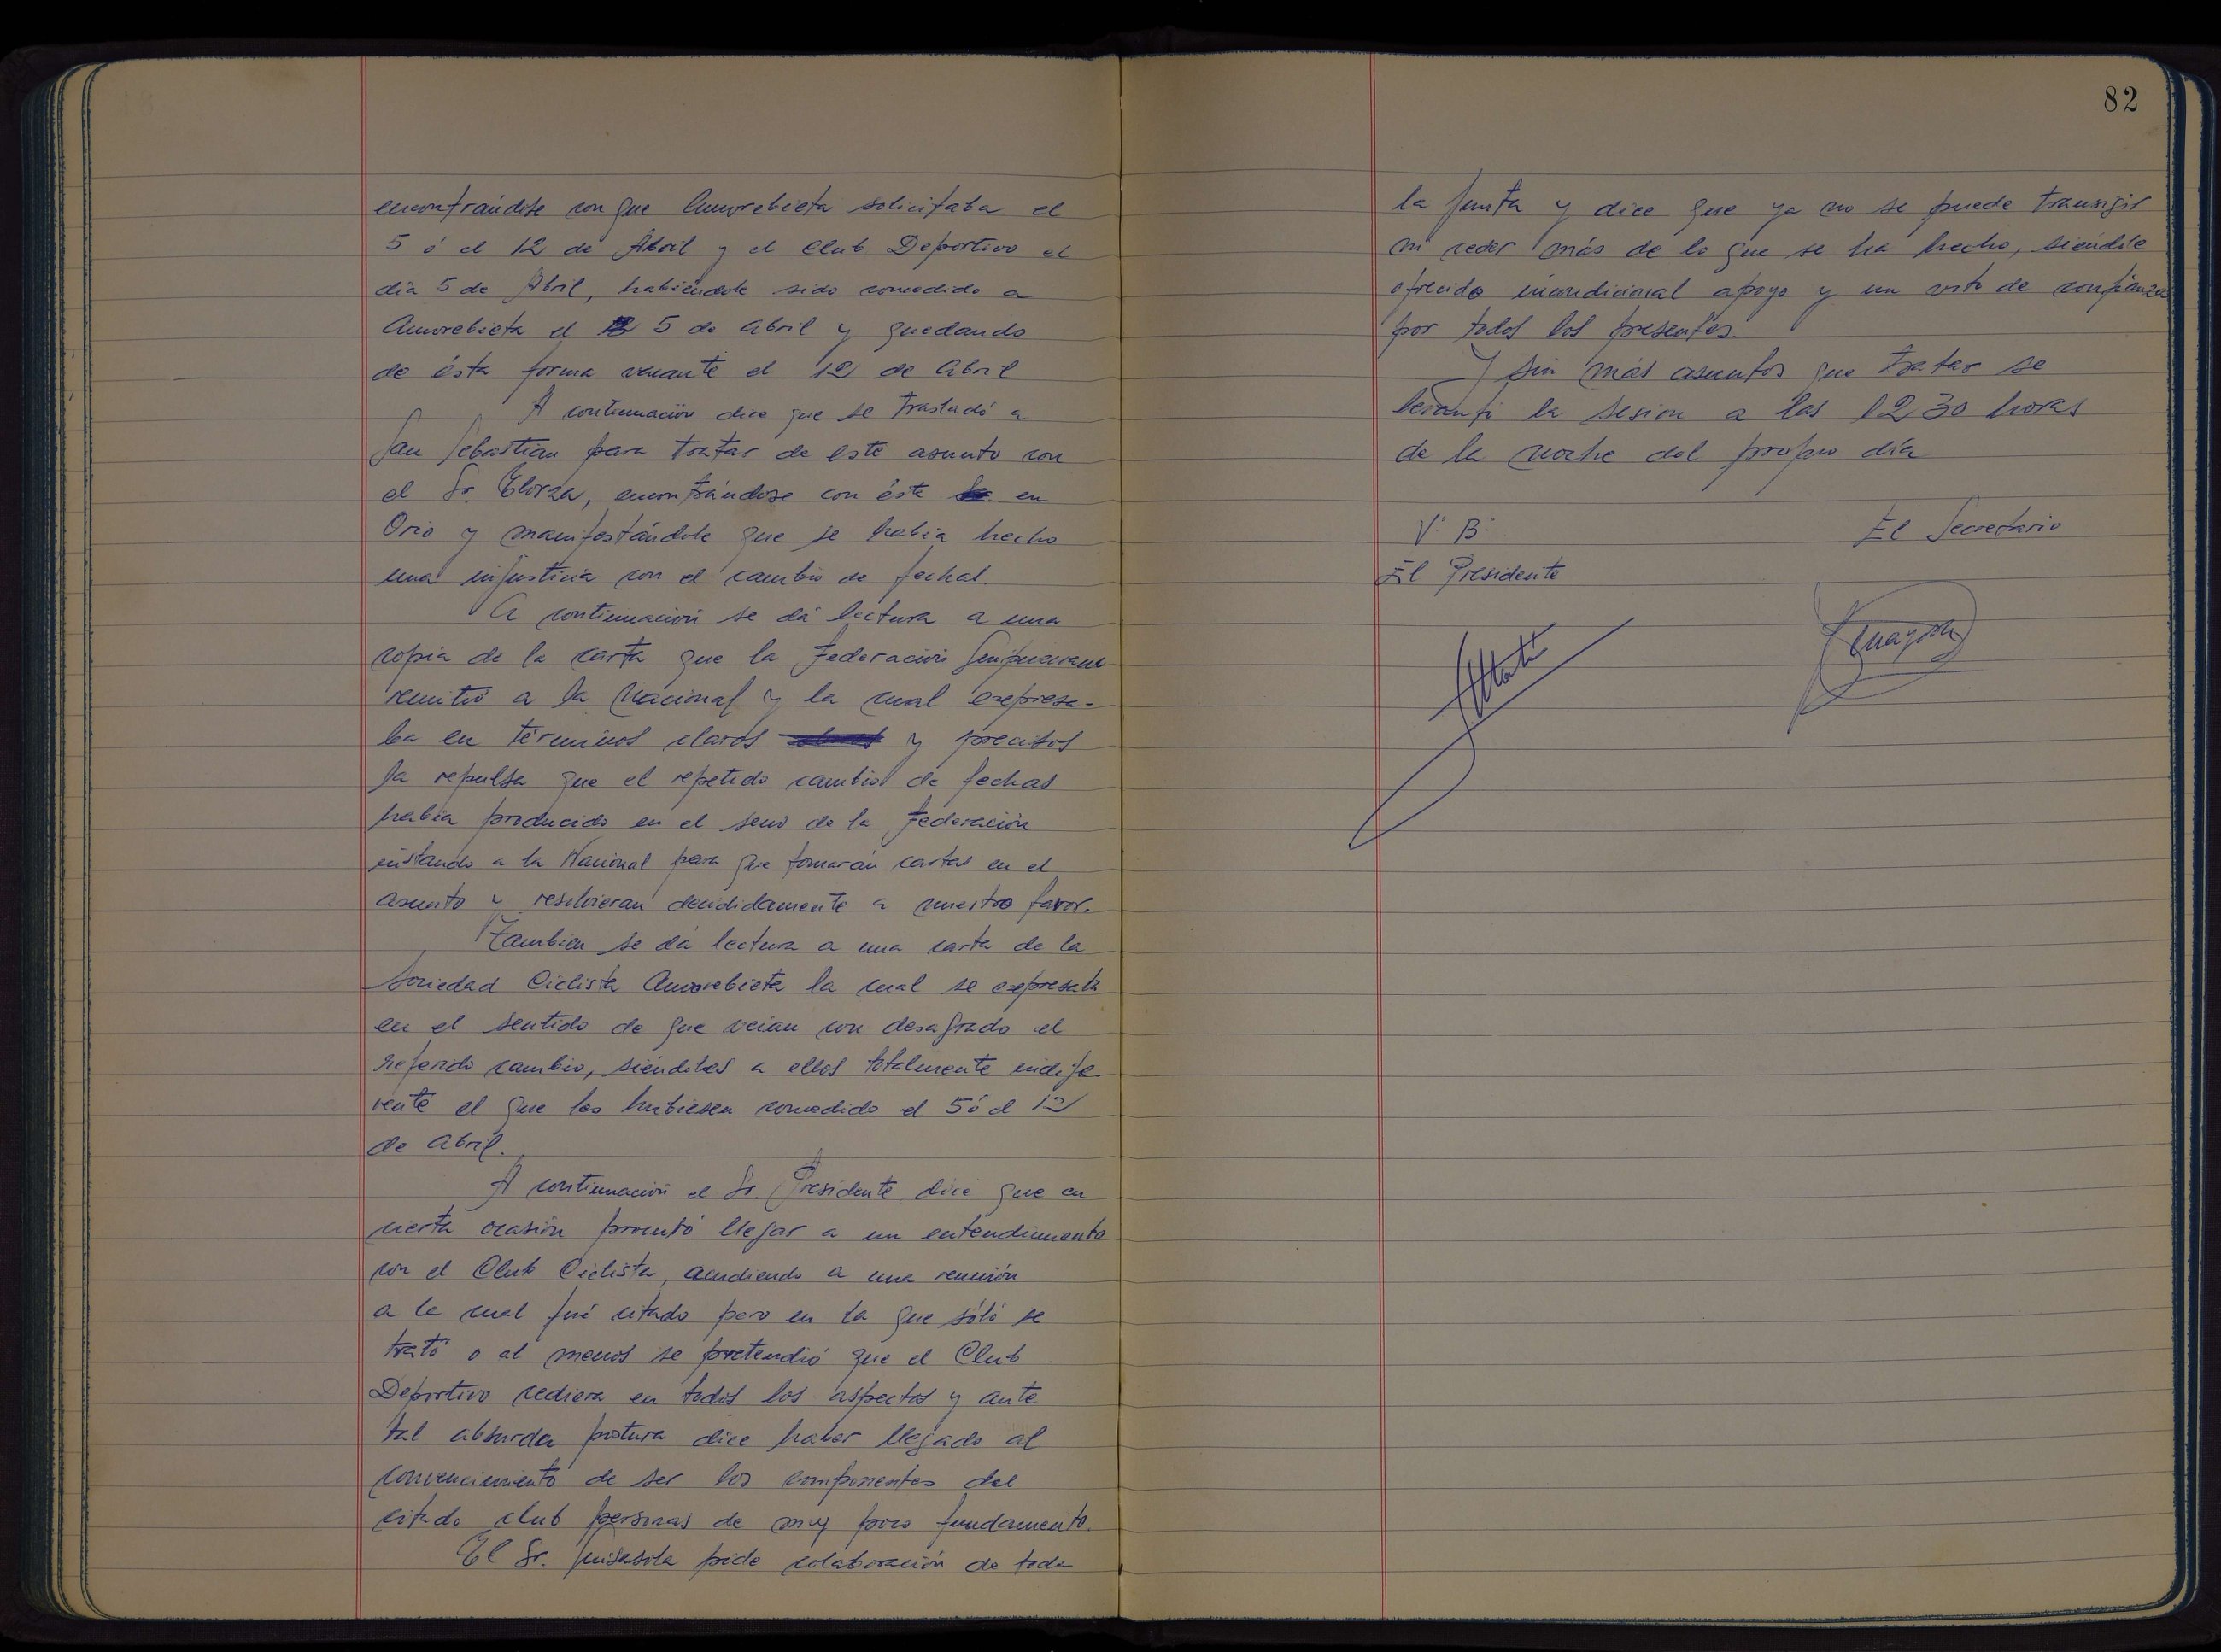 encontrándose con que Amorebieta solicitaba el
5 ó el 12 de Abril y el Club Deportivo el
día 5 de Abril, habiéndole sido concedido a
Amorebieta el 5 de Abril y quedando
de ésta forma vacante el 12 de Abril
A continuación dice que se trasladó a
San Sebastian para tratar de este asunto con
el Sr. Elorza, encontrándose con éste en
Orio y manifestándole que se habia hecho
una injusticia con el cambio de fechas.
A continuación se dá lectura a una
copia de la carta que la Federación Guipuzcoana
remitió a la Nacional y la cual expresa-
ba en términos claros y precisos
la repulsa que el repetido cambio de fechas
habia producido en el seno de la Federación
instando a la Nacional para que tomarán cartas en el
asunto y resolvieran decididamente a nuestro favor.
Tambien se dá lectura a una carta de la
Sociedad Ciclista Amorebieta la cual se expresaba
en el sentido de que veian con desagrado el
referido cambio, siéndoles a ellos totalmente indife-
rente el que les hubiesen concedido el 5 ó el 12
de Abril.
A continuación el Sr. Presidente dice que en
cierta ocasión procuró llegar a un entendimiento
con el Club Ciclista, acudiendo a una reunión
a la cual fué citado pero en la que sóló se
trató o al menos se pretendió que el Club
Deportivo cediera en todos los aspectos y ante
tal absurda postura dice haber llegado al
convencimiento de ser los componentes del
citado club personas de muy poco fundamento.
El Sr. Guisasola pide colaboración de toda
82
la Junta y dice que ya no se puede transigir
ni ceder más de lo que se ha hecho, siéndole
ofrecido incondicional apoyo y un voto de confianza
por todos los presentes.
Y sin más asuntos que tratar se
levantó la sesion a las 12 30 horas
de la noche del propio día
V. B.
El Secretario
El Presidente